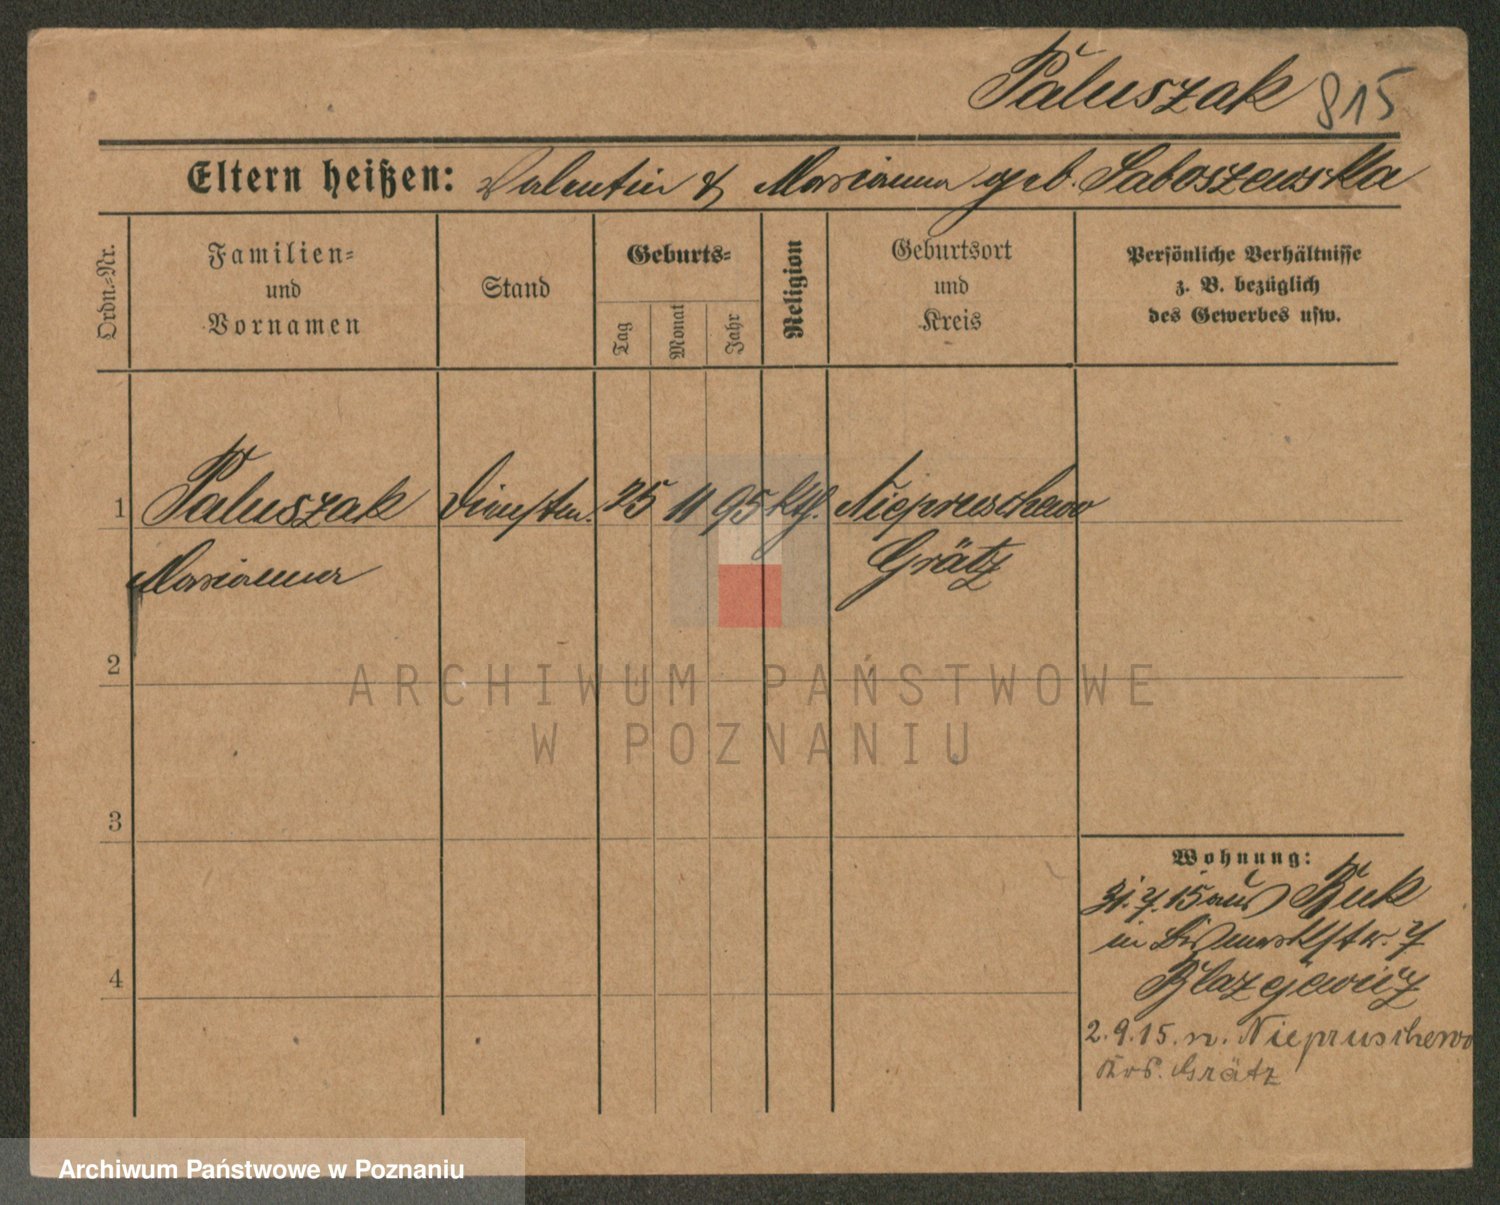 Paluszak 815
Eltern heißen: Valentin & Marianna geb. Saboszewska
Ordn.-Nr.
Familien-
und
Vornamen
Stand
Geburts-
Tag
Monat
Jahr
Religion
Geburtsort
und
Kreis
Persönliche Verhältnisse
z. B. bezüglich
des Gewerbes usw.
1 Paluszak Dienstm. 25 11 95 kth. Niepruschewo
Marianna Grätz
2
3
4
Wohnung:
31.7.15 aus Buk
in Bismarkstr. 7
2.9.15. n. Niepruschewo
Krs. Grätz
ARCHIWUM PAŃSTWOWE
W POZNANIU
Archiwum Państwowe w Poznaniu